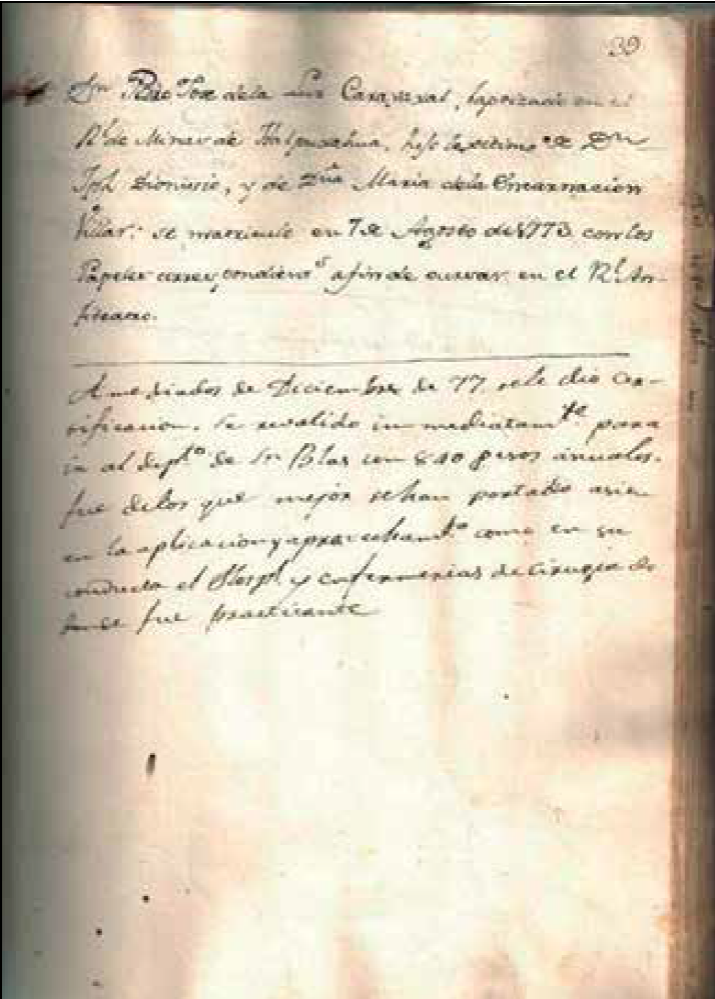 39
Dn Pedro Jose de la Luz Caravexal, bap en el
Rl. de Minas de Tlalpuxahua, hijo lexitimo de Dn
Jph Dionisio, y de Dña Maria de la Encarnacion
Villar: se matriculo en 7 de Agosto de 1773 con los
Papeles correspondientes a fin de cursar en el Rl. An-
fiteatro.
A mediados de Diciembre de 77 se le dio cer-
tificacion. Se revalido inmediatamte. para
ir al depto de Sn Blas con 840 pesos ánuales.
fue de los que mejor se han portado asi
en la aplicacion y aprovechamto como en su
conducta el Hospl. y enfermerias de Cirugia do
fue practicante